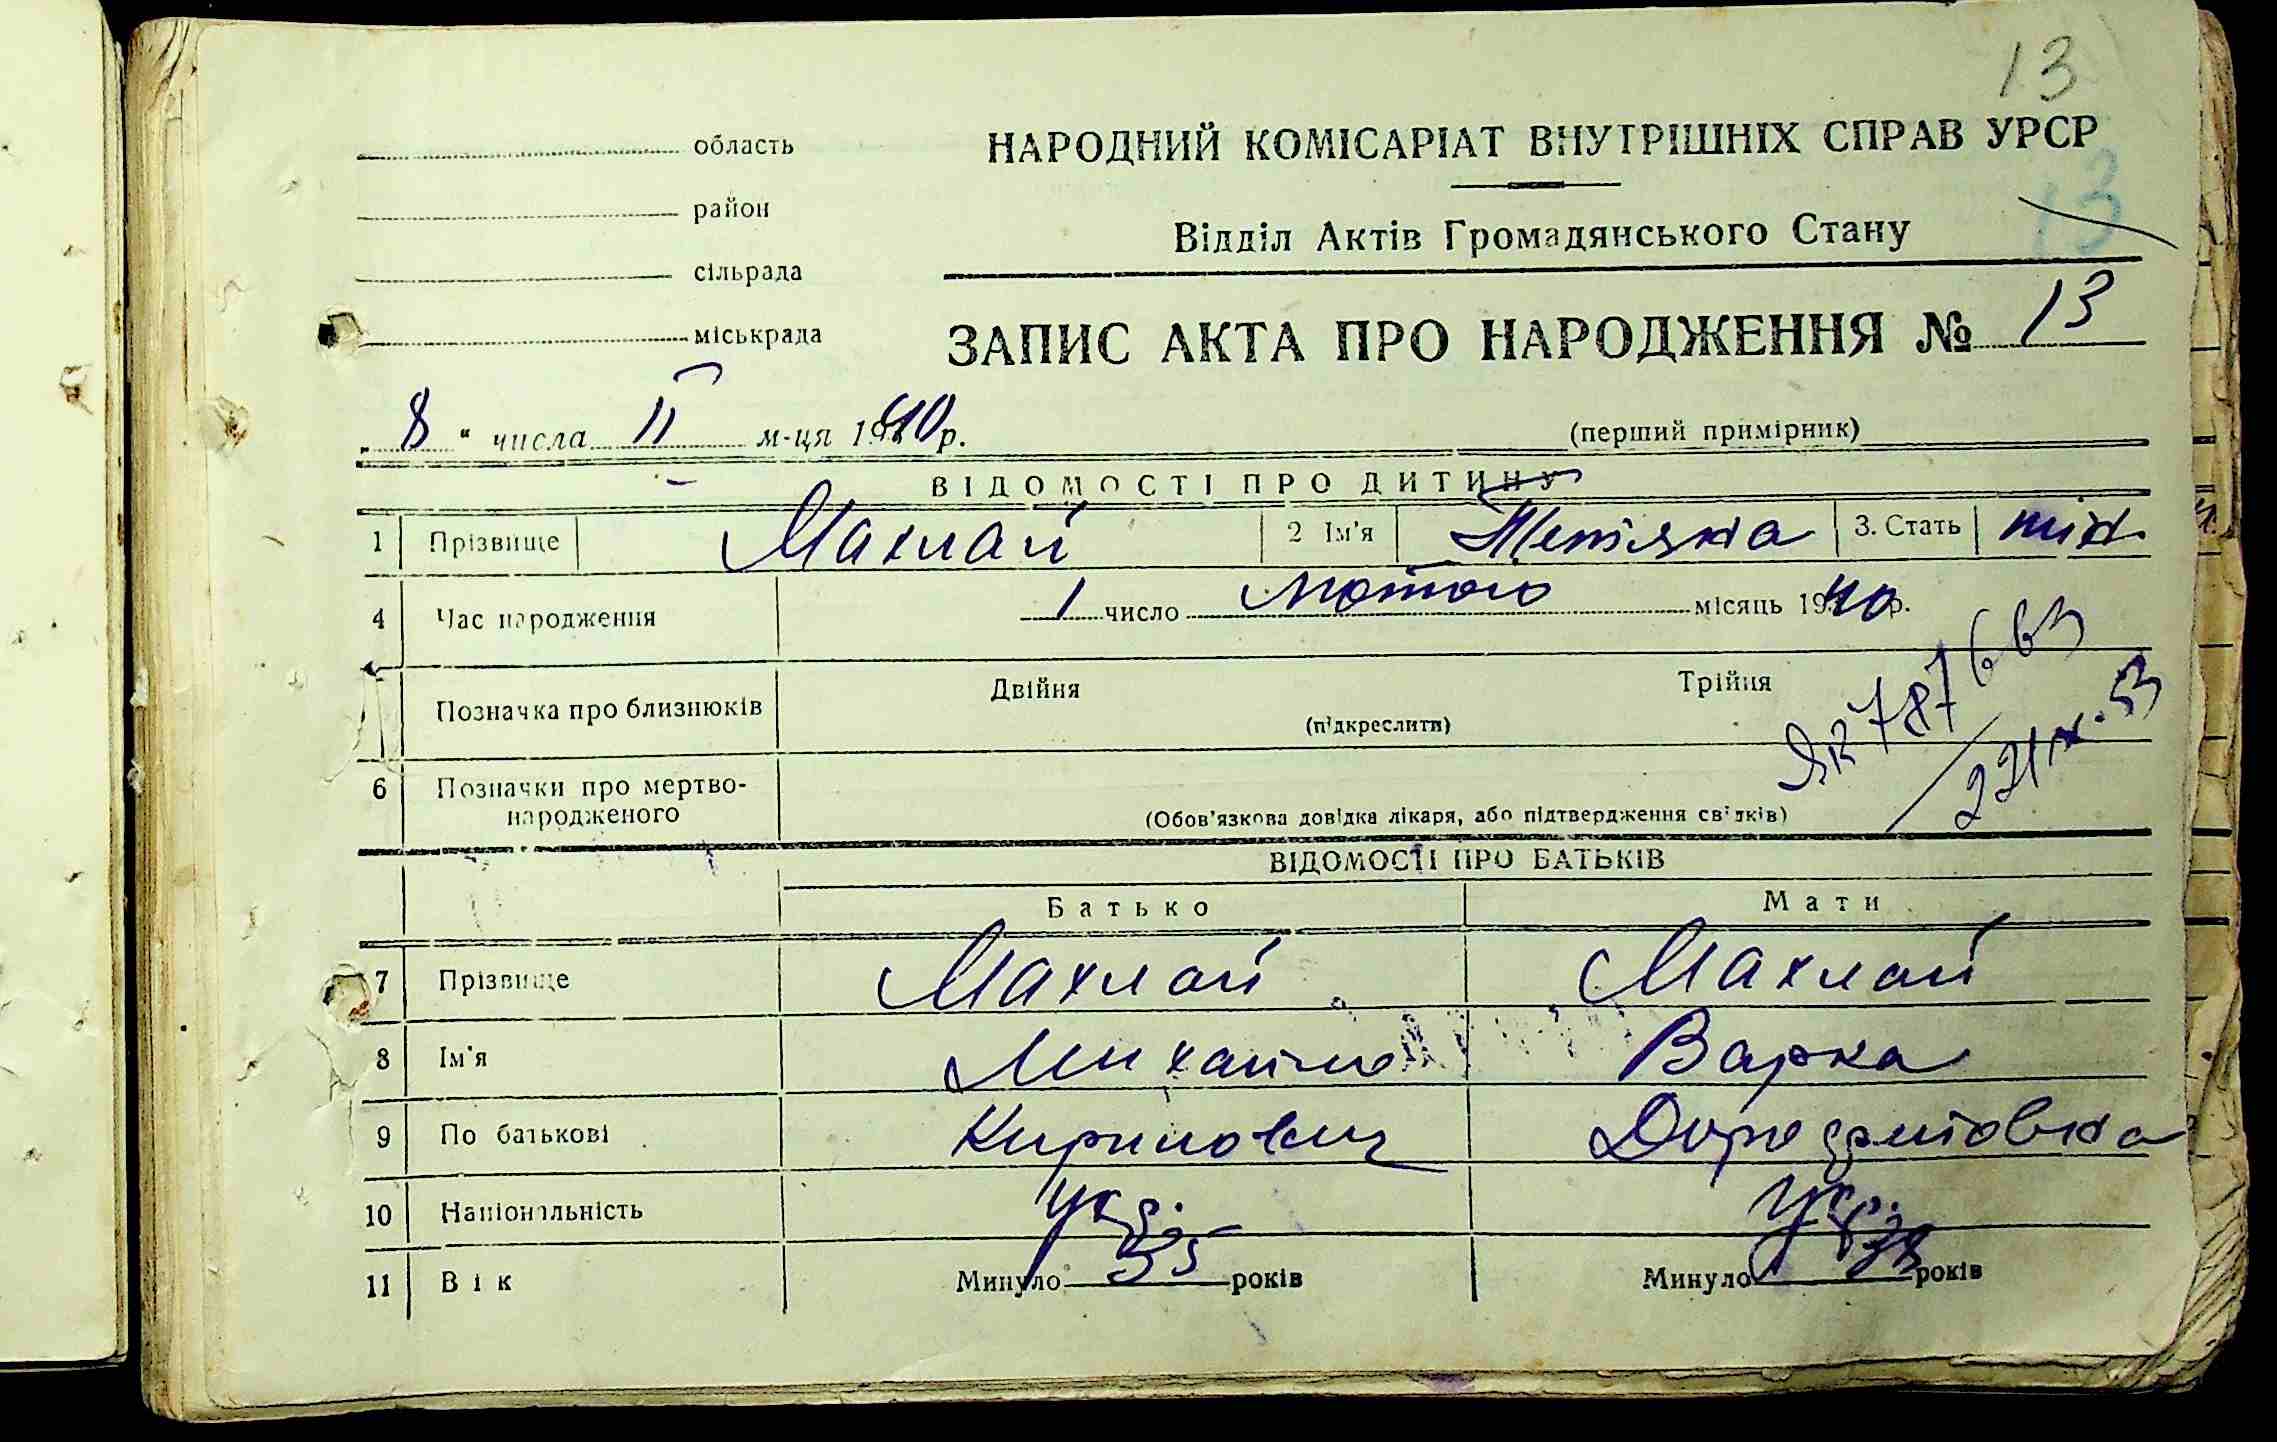 13
область
НАРОДНИЙ КОМІСАРІАТ ВНУТРІШНІХ СПРАВ УРСР
район
13
Відділ Актів Громадянського Стану
сільрада
міськрада
ЗАПИС АКТА ПРО НАРОДЖЕННЯ № 13
„ 8 “ числа II м-ця 1940 р.
(перший примірник)
ВІДОМОСТІ ПРО ДИТИНУ
1 Прізвище Махлай 2 Ім'я 3. Стать жін.
4 Час народження 1 число лютого місяць 1940 р.
Позначка про близнюків Двійня Трійня
(підкреслити)
ЯБ 787663
22/IX.53
6 Позначки про мертво-
народженого
(Обов'язкова довідка лікаря, або підтвердження свідків)
ВІДОМОСТІ ПРО БАТЬКІВ
Батько Мати
7 Прізвище Махлай Махлай
8 Ім'я Михайло Варка
9 По батькові Кирилович
10 Національність Укр. Укр.
11 Вік Минуло 35 років Минуло років